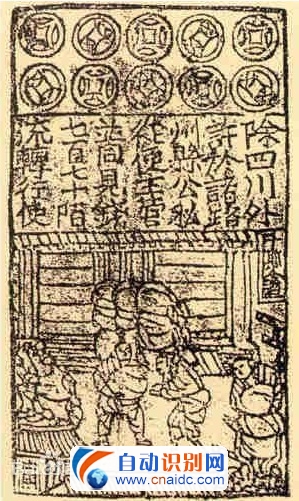 除四川外
許於諸路
州縣公私
從便主管
並同見錢
七百七十陌
流轉行使
自动识别网
www.cnaidc.com